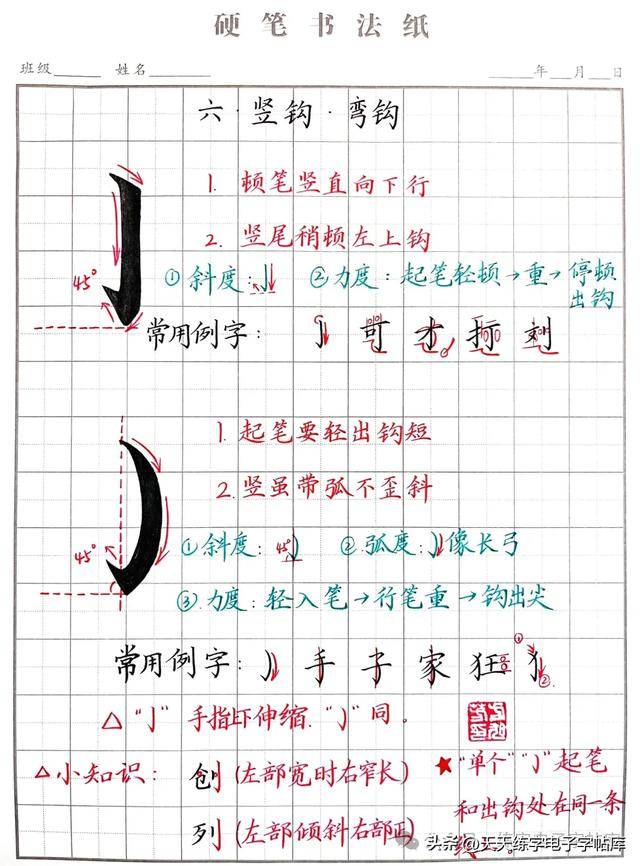 硬笔书法纸
班级 姓名 年 月 日
六·竖钩·弯钩
1. 顿笔竖直向下行
2. 竖尾稍顿左上钩
45°
①斜度: ②力度:起笔轻顿→重→停顿
出钩
常用例字: 亅 哥 才 打 刘
1. 起笔要轻出钩短
2. 竖虽带弧不歪斜
45°
①斜度: 45° ②弧度: 像长弓
③力度:轻入笔→行笔重→钩出尖
常用例字: 手 子 家 狂 犭
① ②
△ "亅" 手指伸缩. "亅" 同。
△小知识: 创 (左部宽时右窄长)
列 (左部倾斜右部正)
★"单个" "亅" 起笔
和出钩处在同一条
头条@天天练字电子字帖库